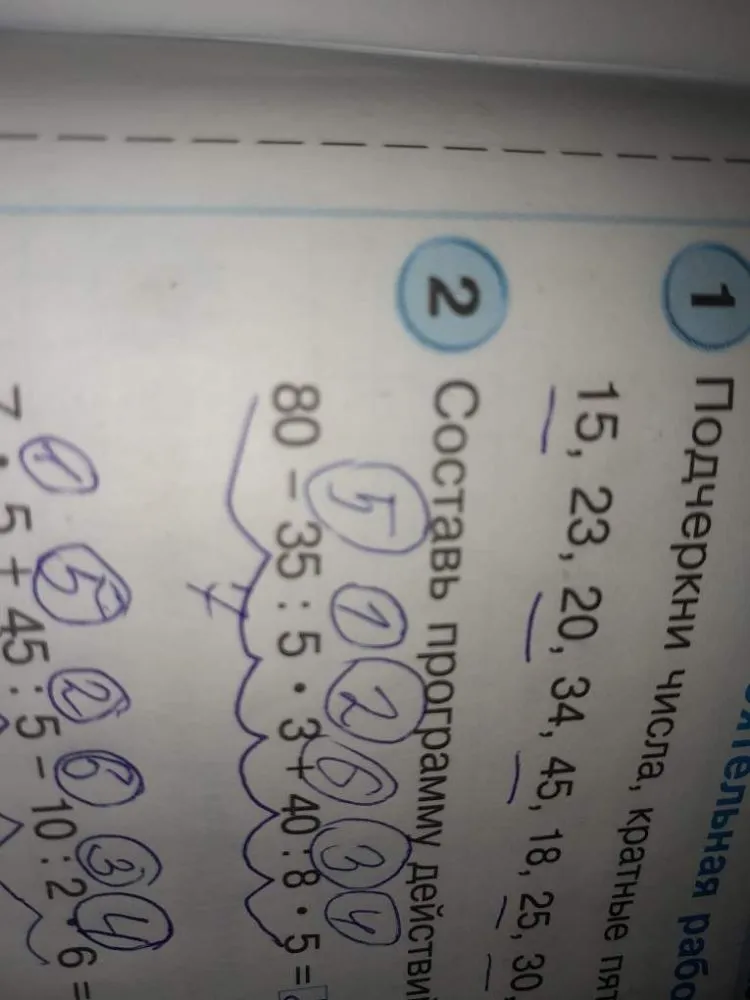 1 Подчеркни числа, кратные
15, 23, 20, 34, 45, 18, 25, 30,
2 Составь программу действий
5 1 2 6 3 4
80 - 35 : 5 • 3 + 40 : 8 • 5 =
1 5 2 6 3 4
7 • 5 + 45 : 5 - 10 : 2 • 6 =